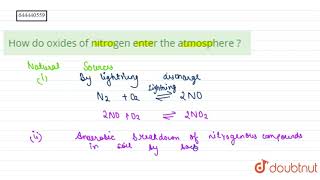 644440559
How do oxides of nitrogen enter the atmosphere ?
Natural Sources
(i) By lightning discharge
N2 + O2 lightning ⇌ 2NO
2NO + O2 ⇌ 2NO2
(ii) Anaerobic breakdown of nitrogenous compounds
in soil by bact
doubtnut